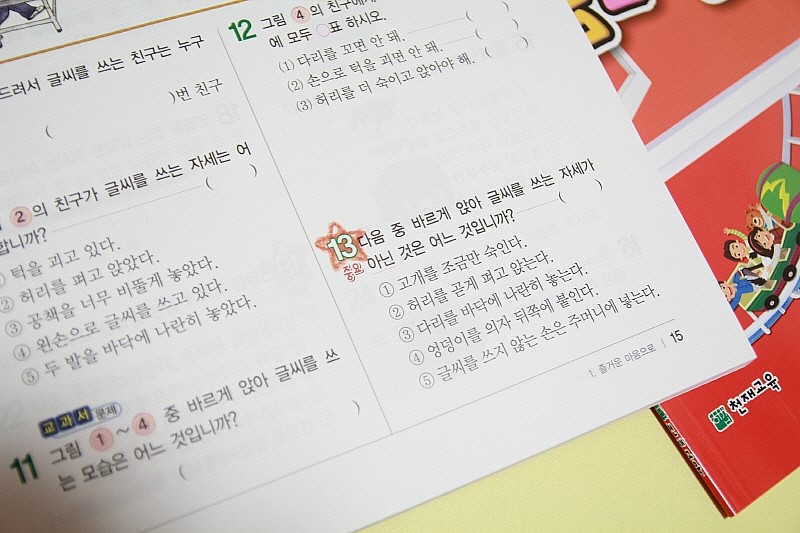 드려서 글씨를 쓰는 친구는 누구
)번 친구
(
2의 친구가 글씨를 쓰는 자세는 어
합니까? ( )
턱을 괴고 있다.
② 허리를 펴고 앉았다.
③ 공책을 너무 비뚤게 놓았다.
④ 왼손으로 글씨를 쓰고 있다.
⑤ 두 발을 바닥에 나란히 놓았다.
교과서 문제
11 그림 1~4 중 바르게 앉아 글씨를 쓰
는 모습은 어느 것입니까?
( )
12 그림 4의 친구에게
에 모두 ○표 하시오.
(1) 다리를 꼬면 안 돼. ( )
(2) 손으로 턱을 괴면 안 돼. ( )
(3) 허리를 더 숙이고 앉아야 해. ( )
13 다음 중 바르게 앉아 글씨를 쓰는 자세가
중요 아닌 것은 어느 것입니까? ( )
① 고개를 조금만 숙인다.
② 허리를 곧게 펴고 앉는다.
③ 다리를 바닥에 나란히 놓는다.
④ 엉덩이를 의자 뒤쪽에 붙인다.
⑤ 글씨를 쓰지 않는 손은 주머니에 넣는다.
1. 즐거운 마음으로 | 15
천재교육